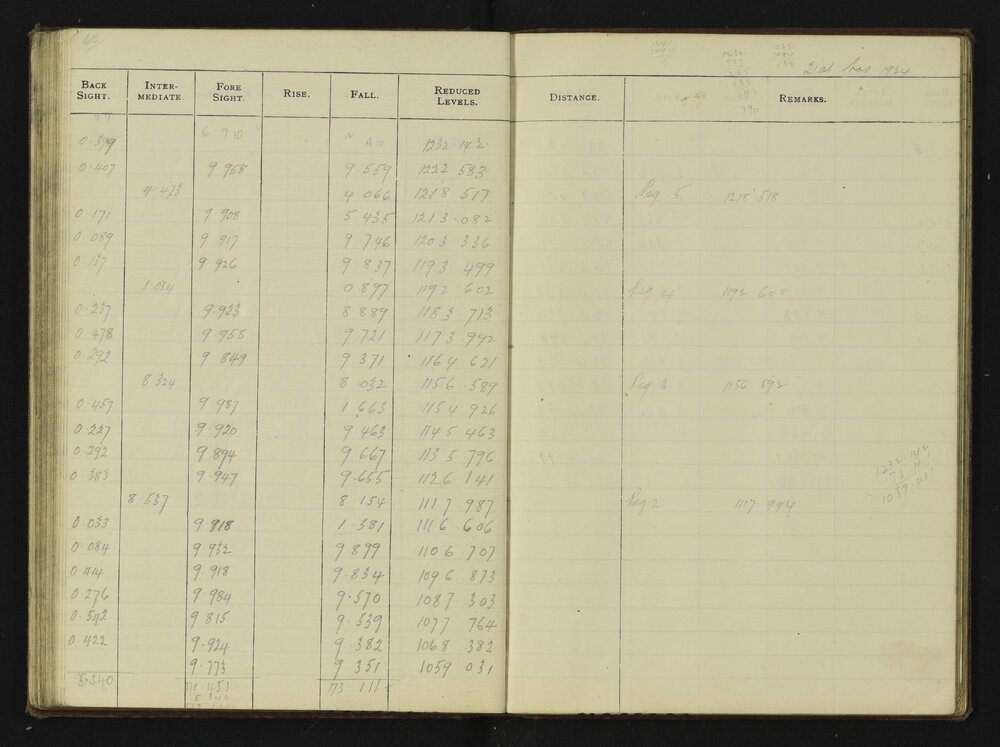 60
21st Nov 1924
BACK SIGHT. INTER-MEDIATE. FORE SIGHT. RISE. FALL. REDUCED LEVELS. DISTANCE. REMARKS.
0.399 1232.142
0.407 9.958 9.559 1222.583
4.473 4.066 1218.517 Peg 5 1218.518
0.171 9.908 5.435 1213.082
0.089 9.917 9.746 1203.336
0.137 9.926 9.837 1193.499
1.034 0.897 1192.602 Peg 4 1192.600
0.237 9.923 8.889 1183.713
0.478 9.958 9.721 1173.992
0.292 9.849 9.371 1164.621
8.324 8.032 1156.589 Peg 3 1156.592
0.457 9.987 1.663 1154.926
0.227 9.920 9.463 1145.463
0.292 9.894 9.667 1135.796
0.383 9.947 9.655 1126.141
8.537 8.154 1117.987 Peg 2 1117.994
0.033 9.918 1.381 1116.606
0.084 9.932 9.899 1106.707
0.414 9.918 9.834 1096.873
0.276 9.984 9.570 1087.303
0.542 9.815 9.539 1077.764
0.422 9.924 9.382 1068.382
9.773 9.351 1059.031
5.340 451 173.111
5.340
1232.142
173.111
1059.031